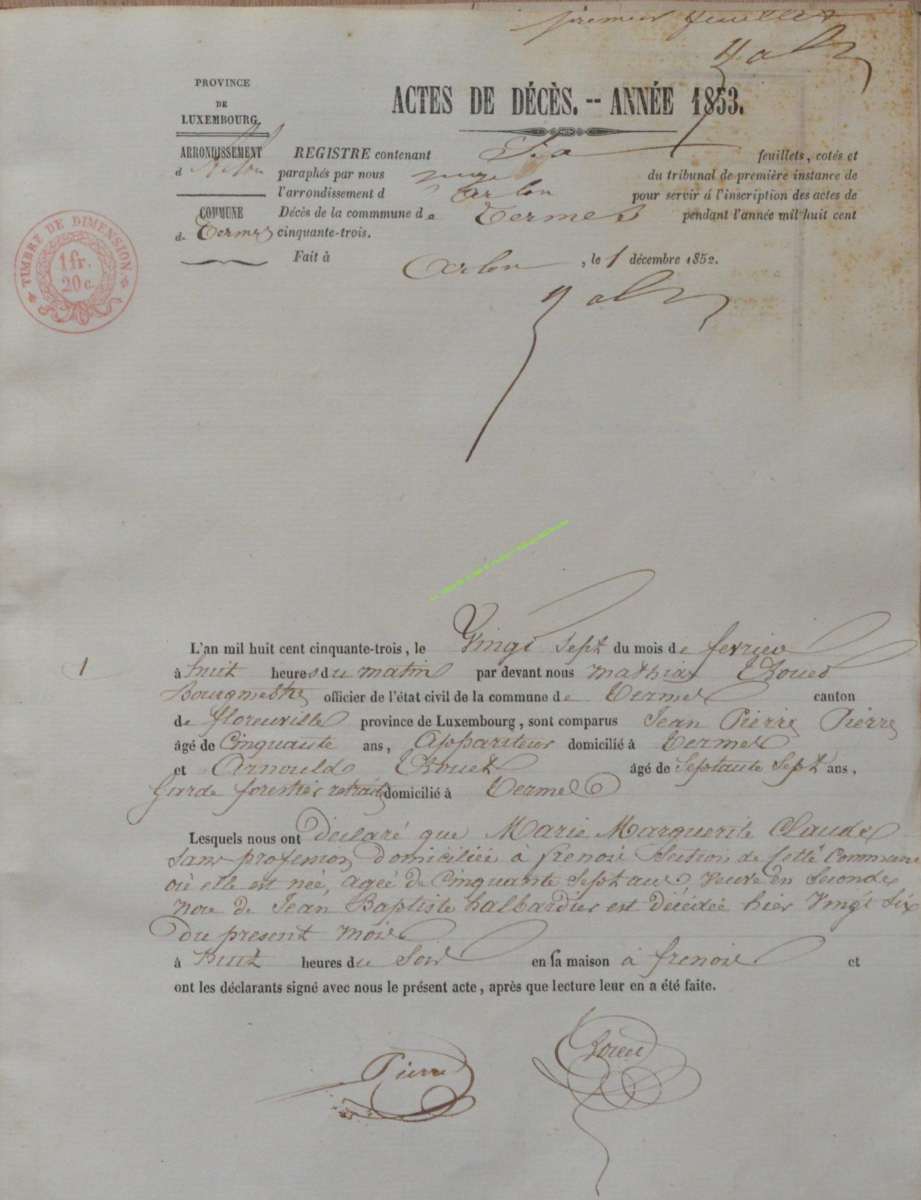 premier feuillet
PROVINCE
DE
LUXEMBOURG.
ARRONDISSEMENT
d'Arlon
COMMUNE
de Termes
ACTES DE DÉCÈS. -- ANNÉE 1853.
REGISTRE contenant Six feuillets, cotés et
paraphés par nous juge du tribunal de première instance de
l'arrondissement d Arlon pour servir á l'inscription des actes de
Décès de la commmune de Termes pendant l'année mil huit cent
cinquante-trois.
Fait à Arlon, le 1 décembre 1852.
TIMBRE DE DIMENSION
1 fr.
20 c.
1
L'an mil huit cent cinquante-trois, le Vingt Sept du mois de fevrier
à huit heures du matin par devant nous mathias
Bourgmestre officier de l'état civil de la commune de Termes canton
de florenville province de Luxembourg, sont comparus Jean Pierre Pierre
âgé de Cinquante ans, Appariteur domicilié à Termes
et Arnould âgé de Septante Sept ans,
Garde forestier retraité domicilié à Termes
Lesquels nous ont declaré que Marie Marguerite Claude
sans profession domiciliée à frenois Section de Cette Commune
où elle est née, agée de Cinquante Sept ans veuve en Seconde
noce de Jean Baptiste halbardier est décédée hier Vingt Six
du present mois
à huit heures du Soir en sa maison à frenois et
ont les déclarants signé avec nous le présent acte, après que lecture leur en a été faite.
Pierre